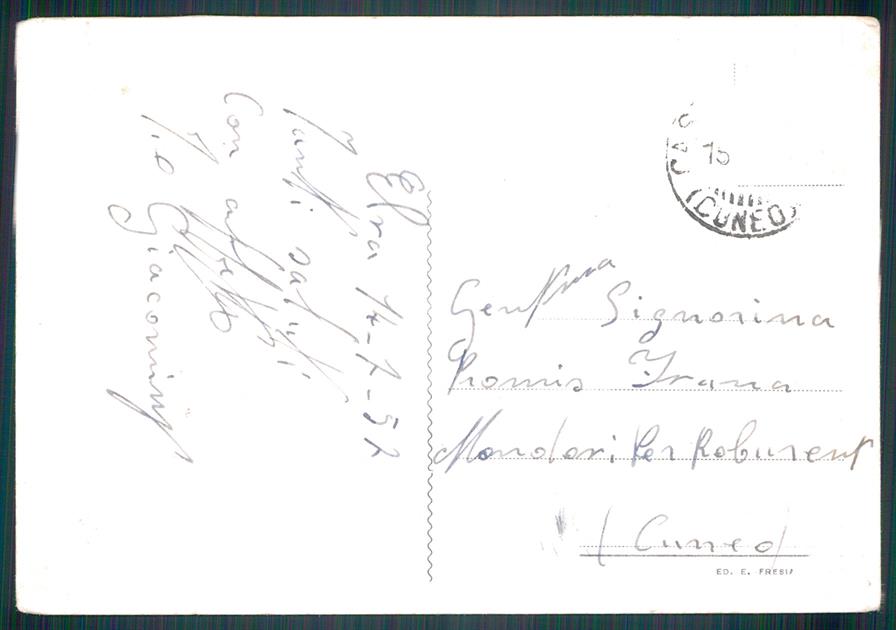 Elva 14-7-57
Tanti saluti
Con affetto
Zio Giacomino
CAS
15
(CUNEO)
Gent/ma Signorina
Promis Irana
Mondovi Per Roburent
(Cuneo)
ED. E. FRESIA